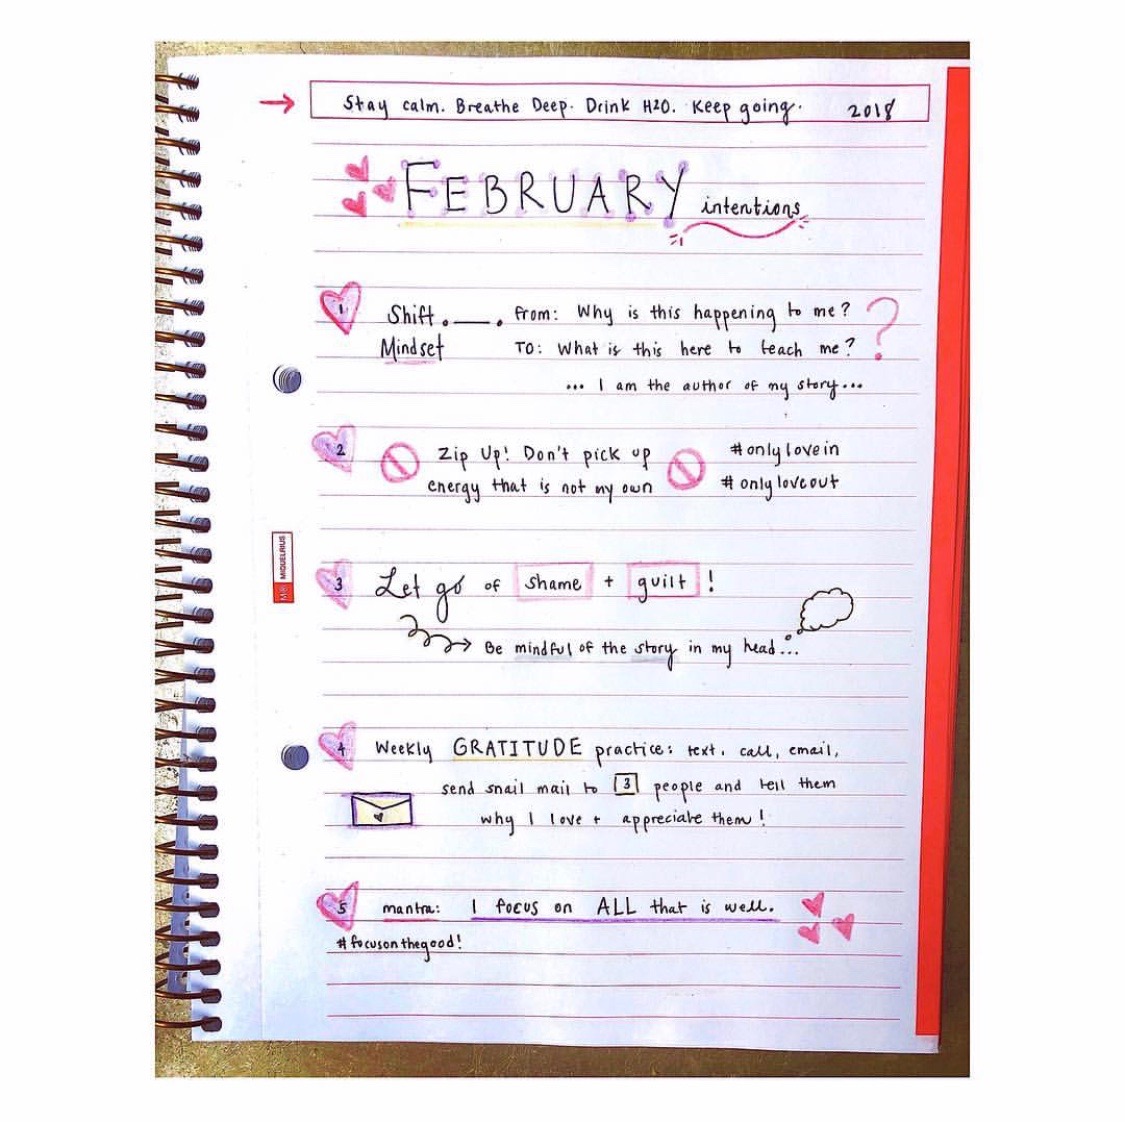 Stay calm. Breathe Deep. Drink H2O. Keep going. 2018
FEBRUARY intentions
1 Shift from: Why is this happening to me? ?
Mindset TO: What is this here to teach me?
... I am the author of my story...
2 Zip Up! Don't pick up #onlylovein
energy that is not my own #onlyloveout
MIQUELRIUS
3 Let go of shame + guilt!
Be mindful of the story in my head...
4 Weekly GRATITUDE practice: text, call, email,
send snail mail to 3 people and tell them
why I love + appreciate them!
5 mantra: I focus on ALL that is well.
#focusonthegood!